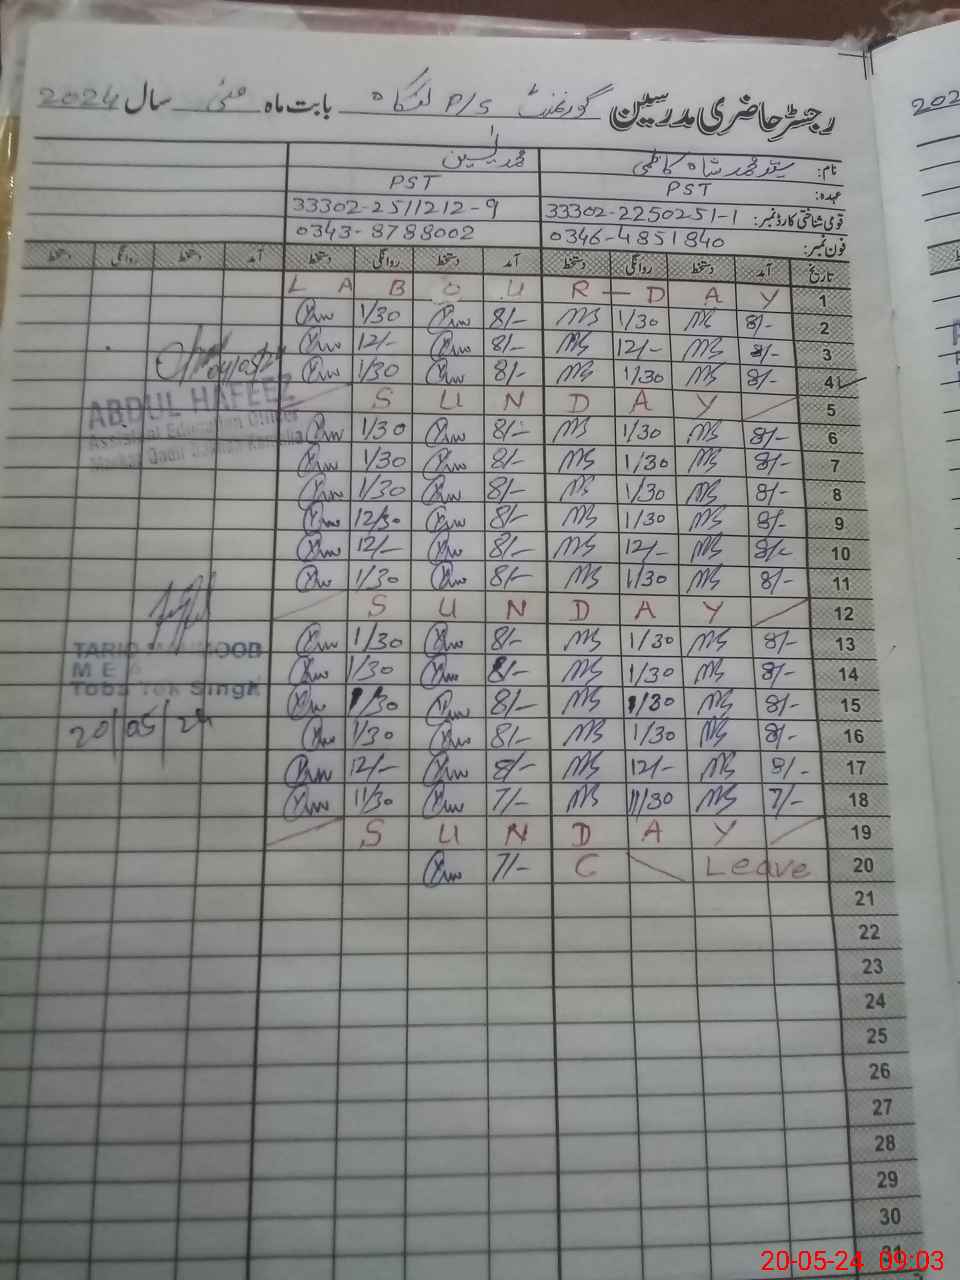 رجسٹر حاضری مدرسین گورنمنٹ P/S بابت ماہ مئی سال 2024
نام: سید محمد شاہ کاظمی محمد یٰسین
عہدہ: PST PST
قومی شناختی کارڈ نمبر: 33302-2250251-1 33302-2511212-9
فون نمبر: 0346-4851840 0343-8788002
تاریخ آمد دستخط روانگی دستخط آمد دستخط روانگی دستخط آمد دستخط روانگی دستخط
1 LABOUR-DAY
2 8/- MS 1/30 MS 8/- 1/30
3 8/- MS 12/- MS 8/- 12/-
4 8/- MS 1/30 MS 8/- 1/30
04/05/24
5 SUNDAY
ABDUL HAFEEZ
Assistant Education Officer
6 8/- MS 1/30 MS 8/- 1/30
7 8/- MS 1/30 MS 8/- 1/30
8 8/- MS 1/30 MS 8/- 1/30
9 8/- MS 1/30 MS 8/- 12/30
10 8/- MS 12/- MS 8/- 12/-
11 8/- MS 1/30 MS 8/- 1/30
12 SUNDAY
13 8/- MS 1/30 MS 8/- 1/30
TARIQ MAHMOOD
M E A
Toba Tek Singh
20/05/24
14 8/- MS 1/30 MS 8/- 1/30
15 8/- MS 1/30 MS 8/- 1/30
16 8/- MS 1/30 MS 8/- 1/30
17 8/- MS 12/- MS 8/- 12/-
18 7/- MS 11/30 MS 7/- 11/30
19 SUNDAY
20 C Leave 7/-
21
22
23
24
25
26
27
28
29
30
31
20-05-24 09:03